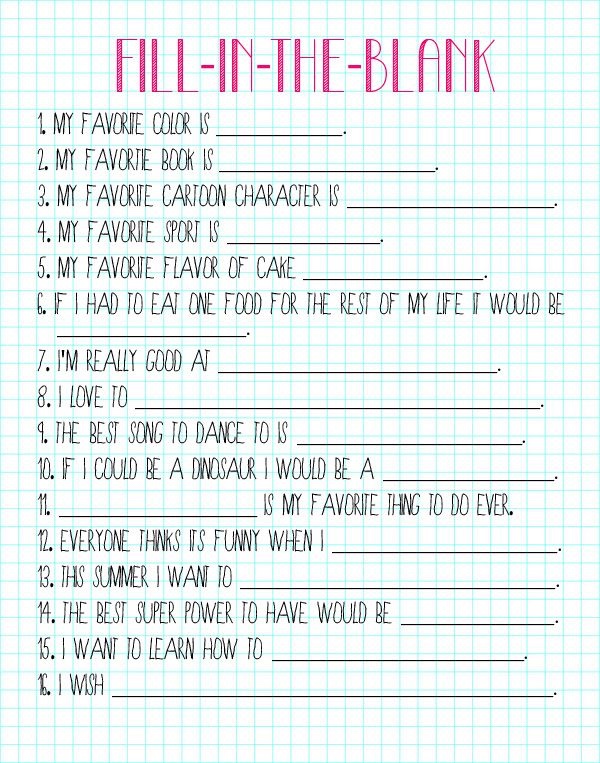 FILL-IN-THE-BLANK
1. MY FAVORITE COLOR IS ____________.
2. MY FAVORTIE BOOK IS ____________________.
3. MY FAVORITE CARTOON CHARACTER IS ____________________.
4. MY FAVORITE SPORT IS ______________.
5. MY FAVORITE FLAVOR OF CAKE _________________.
6. IF I HAD TO EAT ONE FOOD FOR THE REST OF MY LIFE IT WOULD BE
__________________.
7. I'M REALLY GOOD AT __________________________.
8. I LOVE TO ______________________________________.
9. THE BEST SONG TO DANCE TO IS _____________________.
10. IF I COULD BE A DINOSAUR I WOULD BE A ________________.
11. ___________________ IS MY FAVORITE THING TO DO EVER.
12. EVERYONE THINKS ITS FUNNY WHEN I _____________________.
13. THIS SUMMER I WANT TO ______________________________.
14. THE BEST SUPER POWER TO HAVE WOULD BE ______________.
15. I WANT TO LEARN HOW TO ________________________.
16. I WISH __________________________________________.